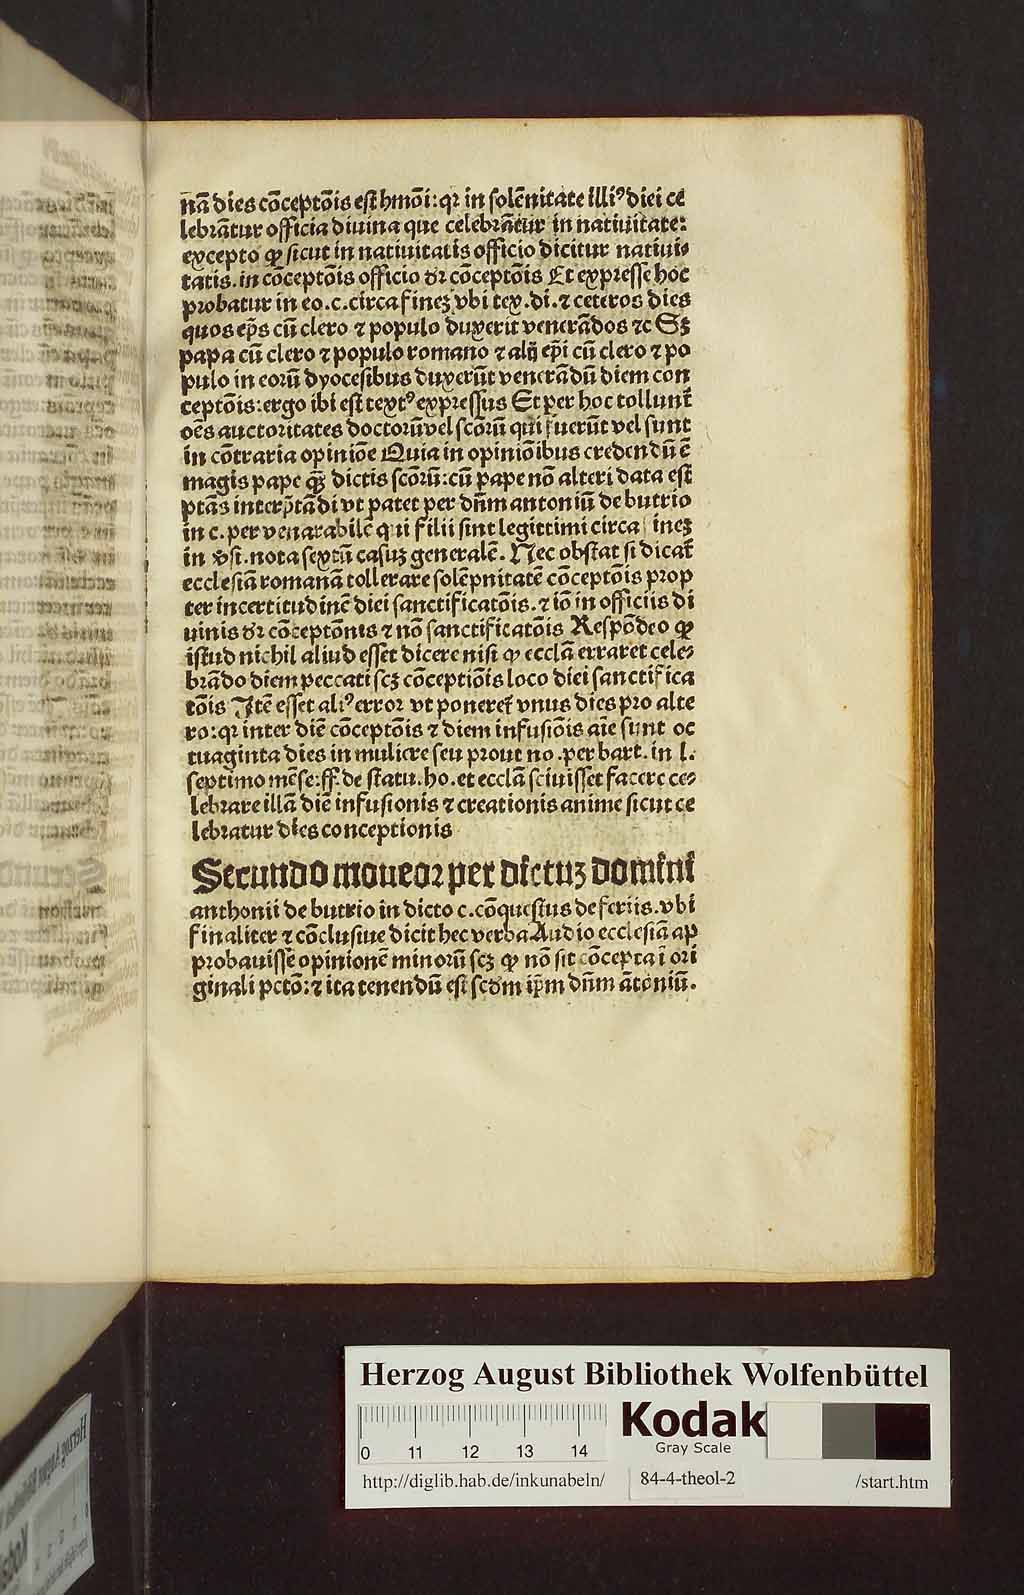 nā dies cōceptōis est hmōi: qꝛ in solēnitate illiꝰ diei ce
lebrātur officia diuina que celebrātur in natiuitate:
excepto ꝙ sicut in natiuitatis officio dicitur natiui⸗
tatis. in cōceptōis officio dꝛ cōceptōis Et expresse hoc
probatur in eo .c. circa fineꝫ vbi tex. di. ⁊ ceteros dies
quos ep̄s cū clero ⁊ populo duxerit venerādos ⁊c Sꝫ
papa cū clero ⁊ populo romano ⁊ alij ep̄i cū clero ⁊ po
pulo in eorū dyocesibus duxerūt venerādū diem con
ceptōis: ergo ibi est textꝰ expressus Et per hoc tollunt̄
oēs auctoritates doctorū vel scōrū qui fuerūt vel sunt
in cōtraria opiniōe Quia in opiniōibus credendū ē
magis pape ꝙ̄ dictis scōrū: cū pape nō alteri data est
ptās interp̄tādi vt patet per dn̄m antoniū de butrio
in c. per venarabilē qui filii sint legittimi circa fineꝫ
in ꝟsi. nota sextū casuꝫ generalē. Nec obstat si dicat̄
ecclesiā romanā tollerare solēpnitatē cōceptōis prop
ter incertitudinē diei sanctificatōis. ⁊ iō in officiis di
uinis dꝛ cōceptōnis ⁊ nō sanctificatōis Respōdeo ꝙ
istud nichil aliud esset dicere nisi ꝙ ecclā erraret cele⸗
brādo diem peccati scꝫ cōceptiōis loco diei sanctifica
tōis Itē esset aliꝰ error vt poneret̄ vnus dies pro alte
ro: qꝛ inter diē cōceptōis ⁊ diem infusiōis aīe sunt oc
tuaginta dies in muliere seu prout no. per bart. in l.
septimo mēse: ff. de statu. ho. et ecclā sciuisset facere ce⸗
lebrare illā diē infusionis ⁊ creationis anime sicut ce
lebratur dies conceptionis
Secundo moueor per dictuꝫ domini
anthonii de butrio in dicto c. cōquestus de feriis. vbi
finaliter ⁊ cōclusiue dicit hec verba Audio ecclesiā ap
probauissē opinionē minorū scꝫ ꝙ nō sit cōcepta ī ori
ginali pctō: ⁊ ita tenendū est scdm ip̄m dn̄m ātoniū.
Herzog August Bibliothek Wolfenbüttel
0 11 12 13 14
Kodak
Gray Scale
http://diglib.hab.de/inkunabeln/ 84-4-theol-2 /start.htm